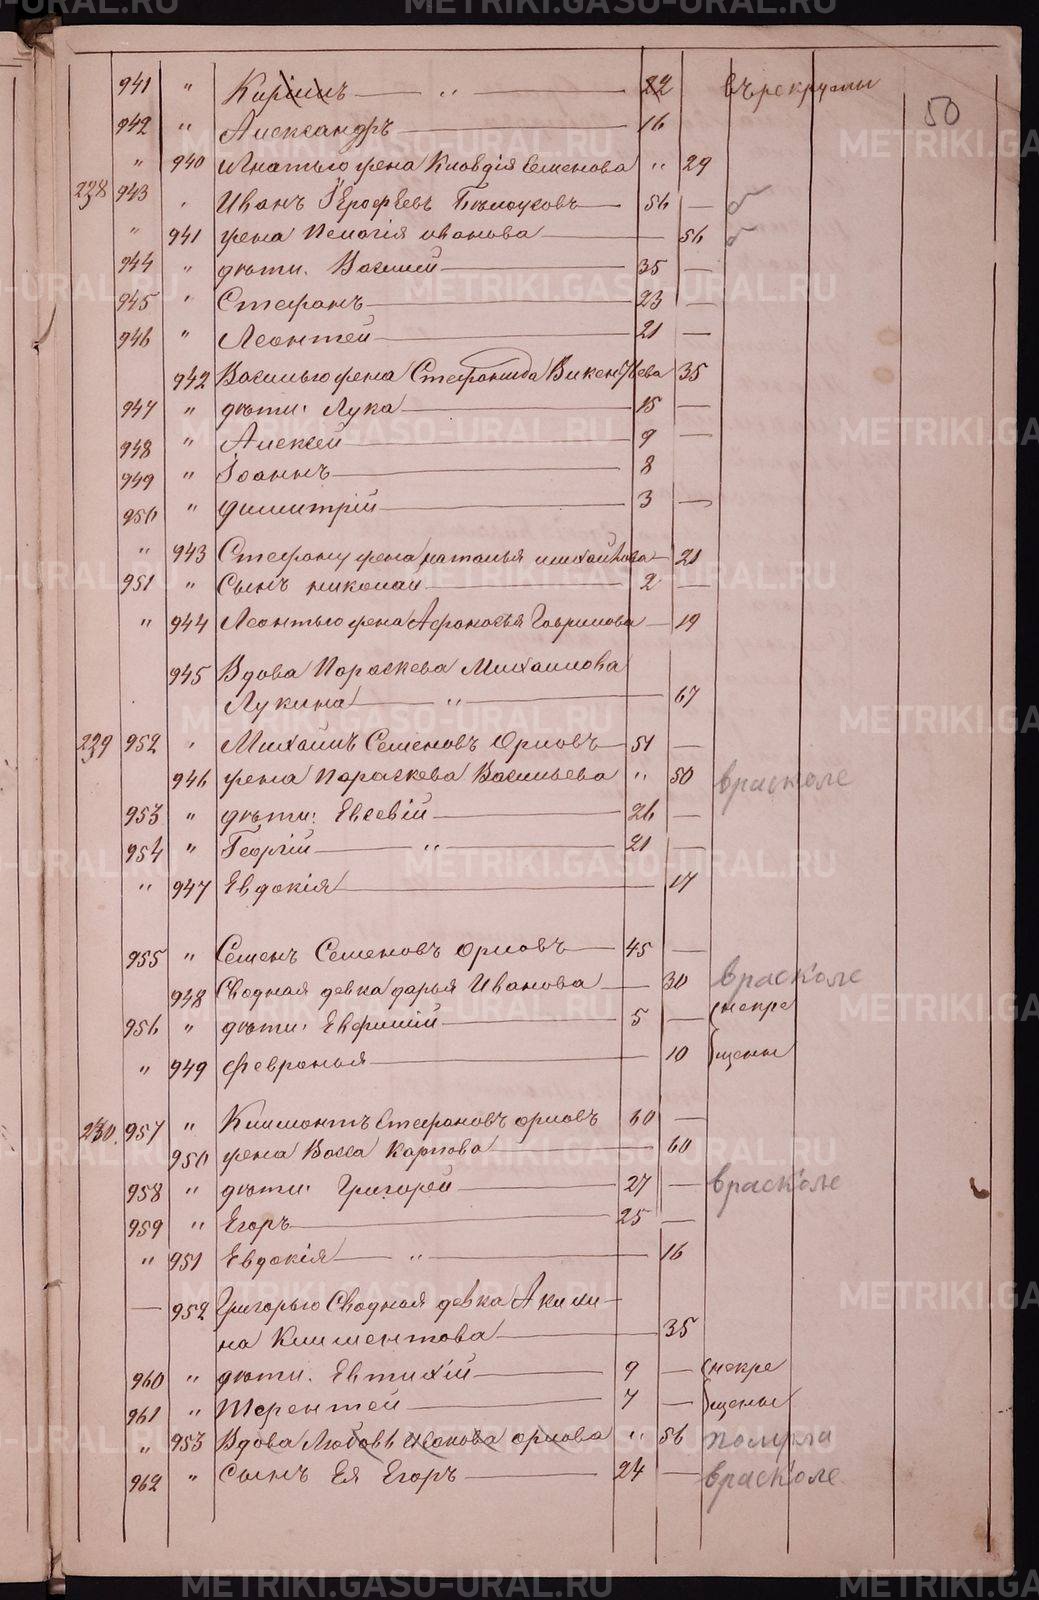 50
941 " Кирилъ — " — 22 въ рекруты
942 " Александръ — 16
" 940 Игнатью жена Клавдія Семенова " 29
238 943 " Иванъ Іерофѣевъ 56 —
" 941 жена Пелагія иванова — 56
944 " дѣти. Василій — 35 —
945 " Стефанъ — 23 —
946 " Леонтей — 21 —
942 Василью жена Стефанида Викентьева 35
947 " дѣти: Лука — 15 —
948 " Алексѣй — 9 —
949 " Іоаннъ — 8
950 " Димитрій — 3 —
" 943 Стефану жена наталья михайлова — 21
951 " Сынъ николай — 2 —
" 944 Леонтью жена Афанасья Гаврилова — 19
945 Вдова Параскева Михаилова
Лукина — " — 67
239 952 " Михаилъ Семеновъ Орловъ — 51 —
946 жена Параскева Васильева " 50 в расколе
953 " дѣти: Евсевій — 26 —
954 " Георгій — " — 21 —
" 947 Евдокія — 17
955 " Семенъ Семеновъ орловъ — 45 —
948 Сводная девка дарья Иванова — 30 в расколе
956 " дѣти: Евфимій — 5 — (некре
" 949 Февронья — 10 щены
240. 957 " Климонтъ Стефановъ орловъ 60 —
950 жена Васса карпова — 60
958 " дѣти: Григорей — 27 — в расколе
959 " Егоръ — 25 —
" 951 Евдокія — " — 16
— 952 Григорью Сводная девка Акили-
на Климентова — 35
960 " дѣти. Евтихій — 9 — (некре
961 " Терентей — 7 — щены
" 953 Вдова Любовь Иванова орлова " 56 померла
962 " Сынъ Ея Егоръ — 24 — в расколе
METRIKI.GASO-URAL.RU